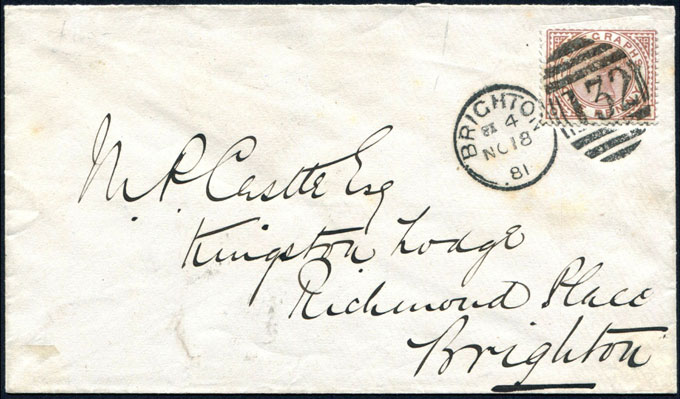 GRAPHS
132
BRIGHTON
BX 4
NO 18
81
M. P. Castle Esq
Kingston Lodge
Richmond Place
Brighton